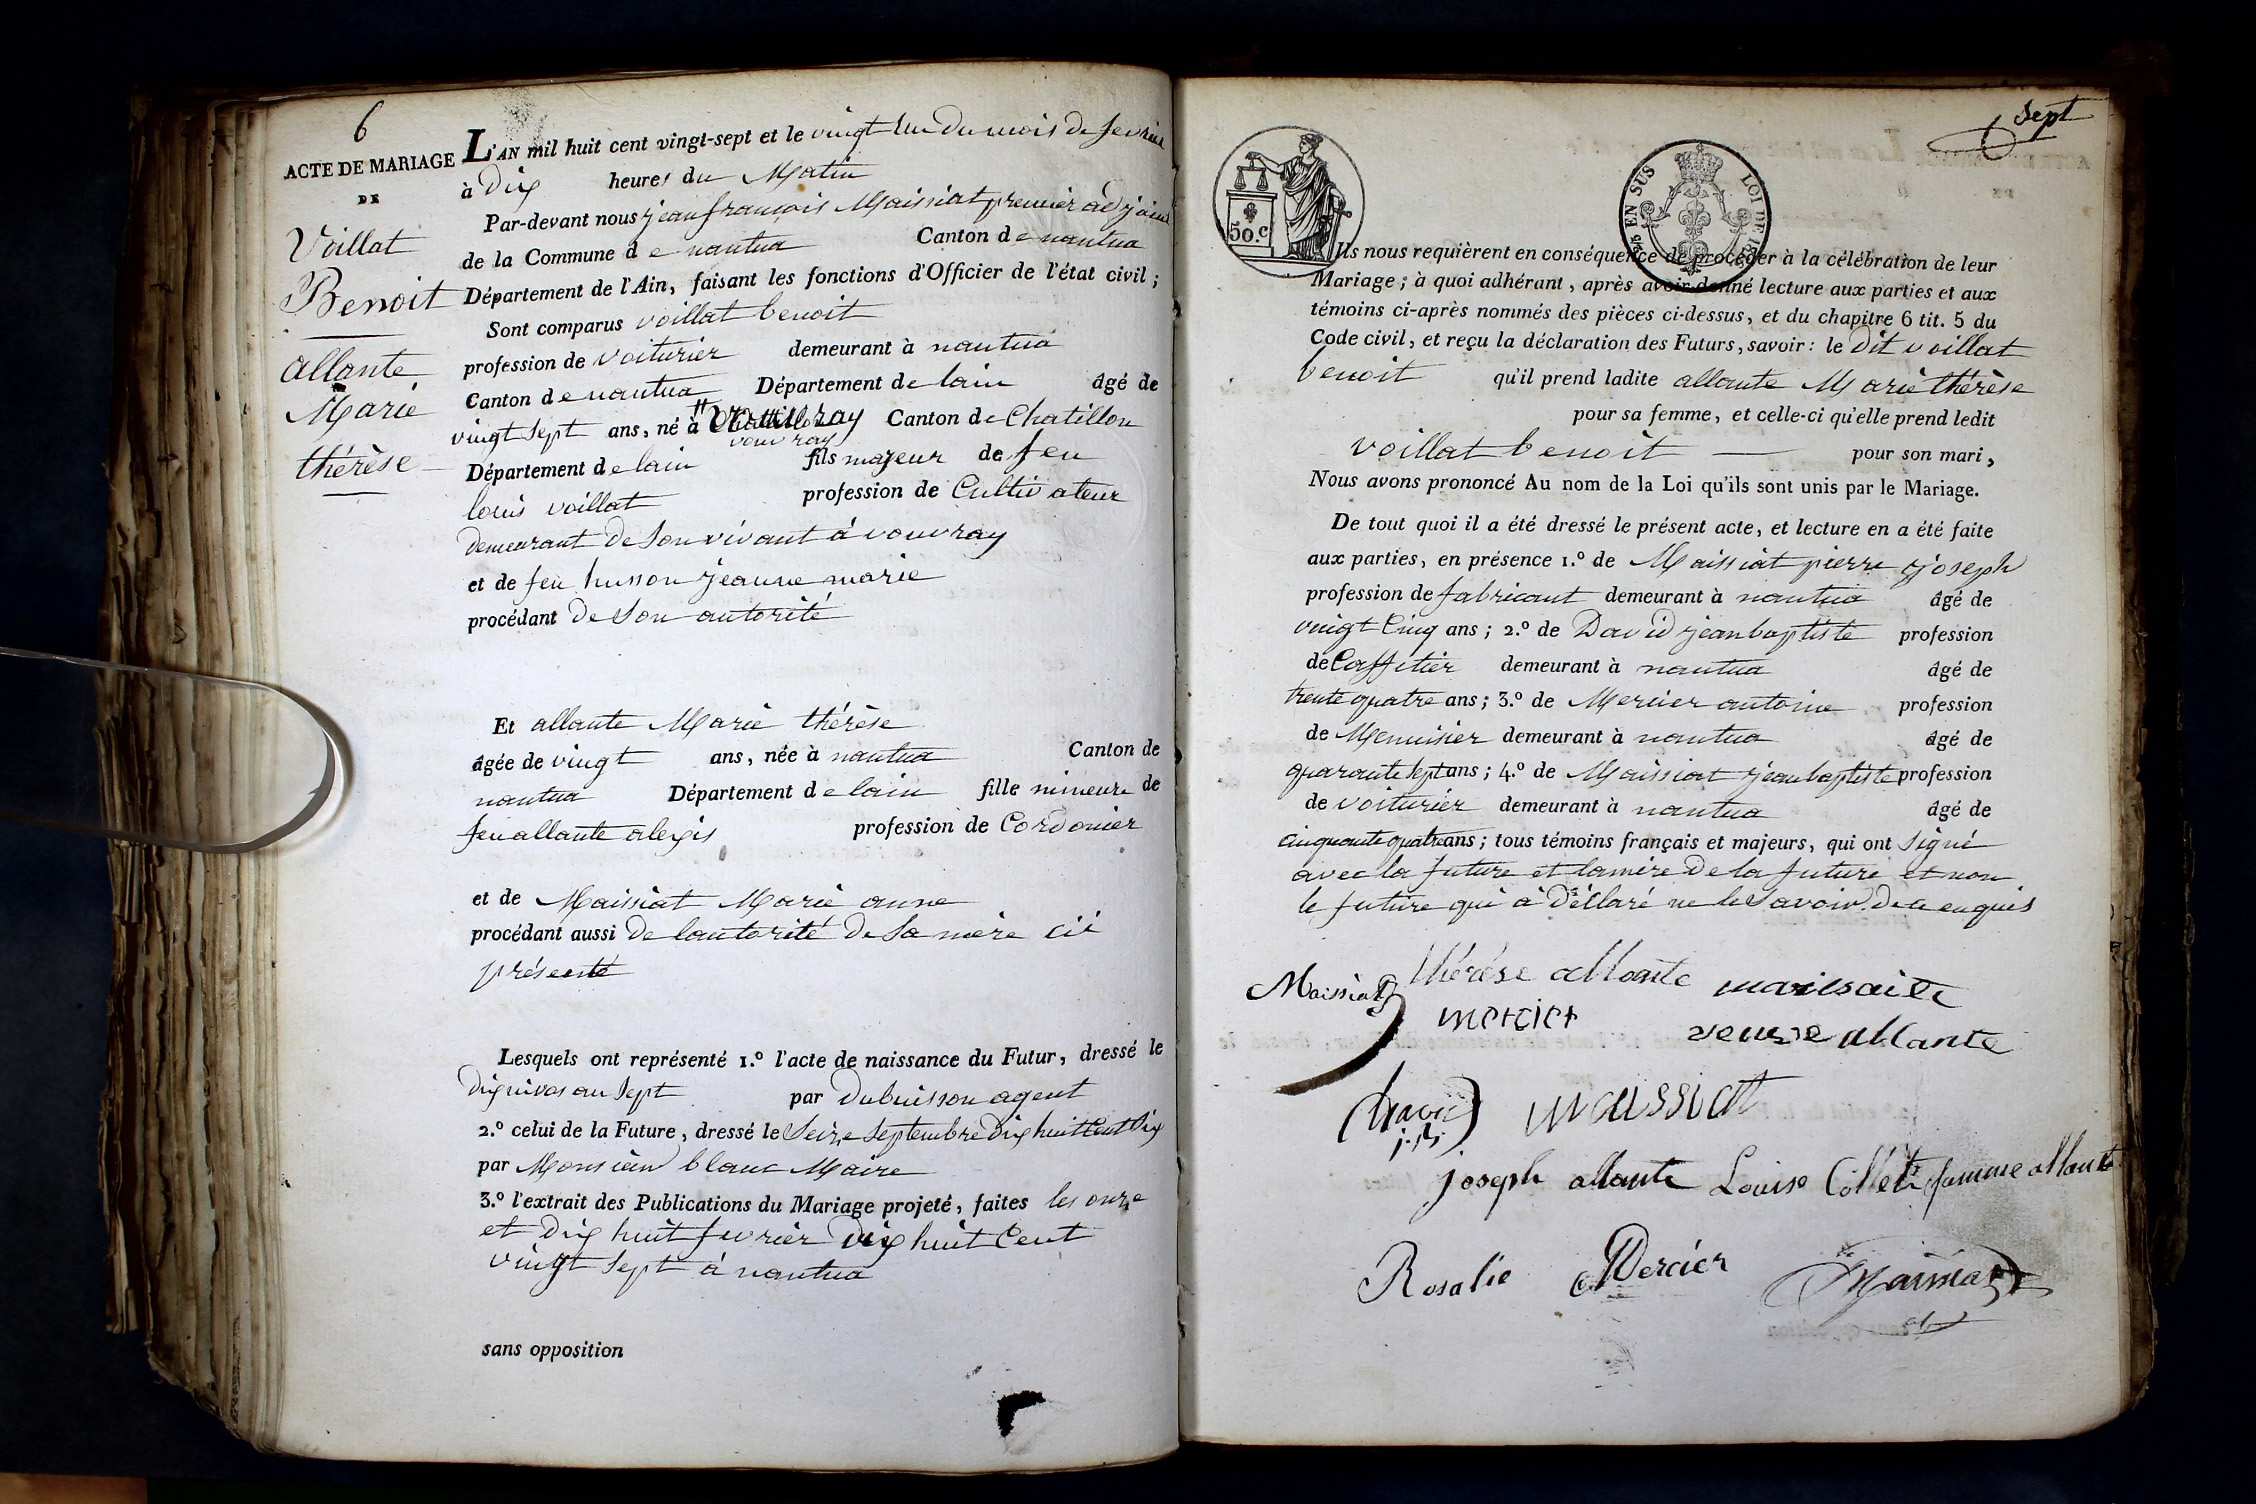 6
ACTE DE MARIAGE
DE
Voillat
Benoit
allante
Marie
thérèse
L'AN mil huit cent vingt-sept et le vingt un du mois de fevrier
à dix heures du Matin
Par-devant nous jean françois Maissiat premier adjoint
de la Commune de nantua Canton de nantua
Département de l'Ain, faisant les fonctions d'Officier de l'état civil ;
Sont comparus voillat benoit
profession de voiturier demeurant à nantua
Canton de nantua Département de lain âgé de
vingt sept ans, né à vouvray Canton de Chatillon
vouvray
Département de lain fils majeur de feu
louis voillat profession de Cultivateur
demeurant de Son vivant à vouvray
et de feu husson jeanne marie
procédant de Son autorité
Et allante Marie thérèse
âgée de vingt ans, née à nantua Canton de
nantua Département de lain fille mineure de
feu allante alexis profession de Cordonier
et de Maissiat Marie anne
procédant aussi de lautorité de Sa mère cii
présente
Lesquels ont représenté 1.º l'acte de naissance du Futur, dressé le
dix nivos an Sept par dubuisson agent
2.º celui de la Future, dressé le Seize Septembre dix huit Cent Six
par Monsieur blanc Maire
3.º l'extrait des Publications du Mariage projeté, faites les onze
et dix huit fevrier dix huit Cent
vingt Sept à nantua
sans opposition
Sept
50.c
EN SUS
LOI DE
Ils nous requièrent en conséquence de procéder à la célébration de leur
Mariage ; à quoi adhérant, après avoir donné lecture aux parties et aux
témoins ci-après nommés des pièces ci-dessus, et du chapitre 6 tit. 5 du
Code civil, et reçu la déclaration des Futurs, savoir : le dit voillat
benoit qu'il prend ladite allante Marie thérèse
pour sa femme, et celle-ci qu'elle prend ledit
voillat benoit pour son mari,
Nous avons prononcé Au nom de la Loi qu'ils sont unis par le Mariage.
De tout quoi il a été dressé le présent acte, et lecture en a été faite
aux parties, en présence 1.º de Maissiat pierre joseph
profession de fabricant demeurant à nantua âgé de
vingt Cinq ans ; 2.º de David jean baptiste profession
de Caffetier demeurant à nantua âgé de
trente quatre ans ; 3.º de Mercier antoine profession
de Menuisier demeurant à nantua âgé de
quarante Sept ans ; 4.º de Maissiat jean baptiste profession
de voiturier demeurant à nantua âgé de
cinquante quatre ans ; tous témoins français et majeurs, qui ont Signé
avec la future et lamère de la future et non
le future qui à déclaré ne le Savoir de ce enquis
Maissiat thérèse allante
mercier
veuve allante
David
j. B.
maissiat
joseph allante Louise Collet femme allante
Rosalie Mercier Maissiat